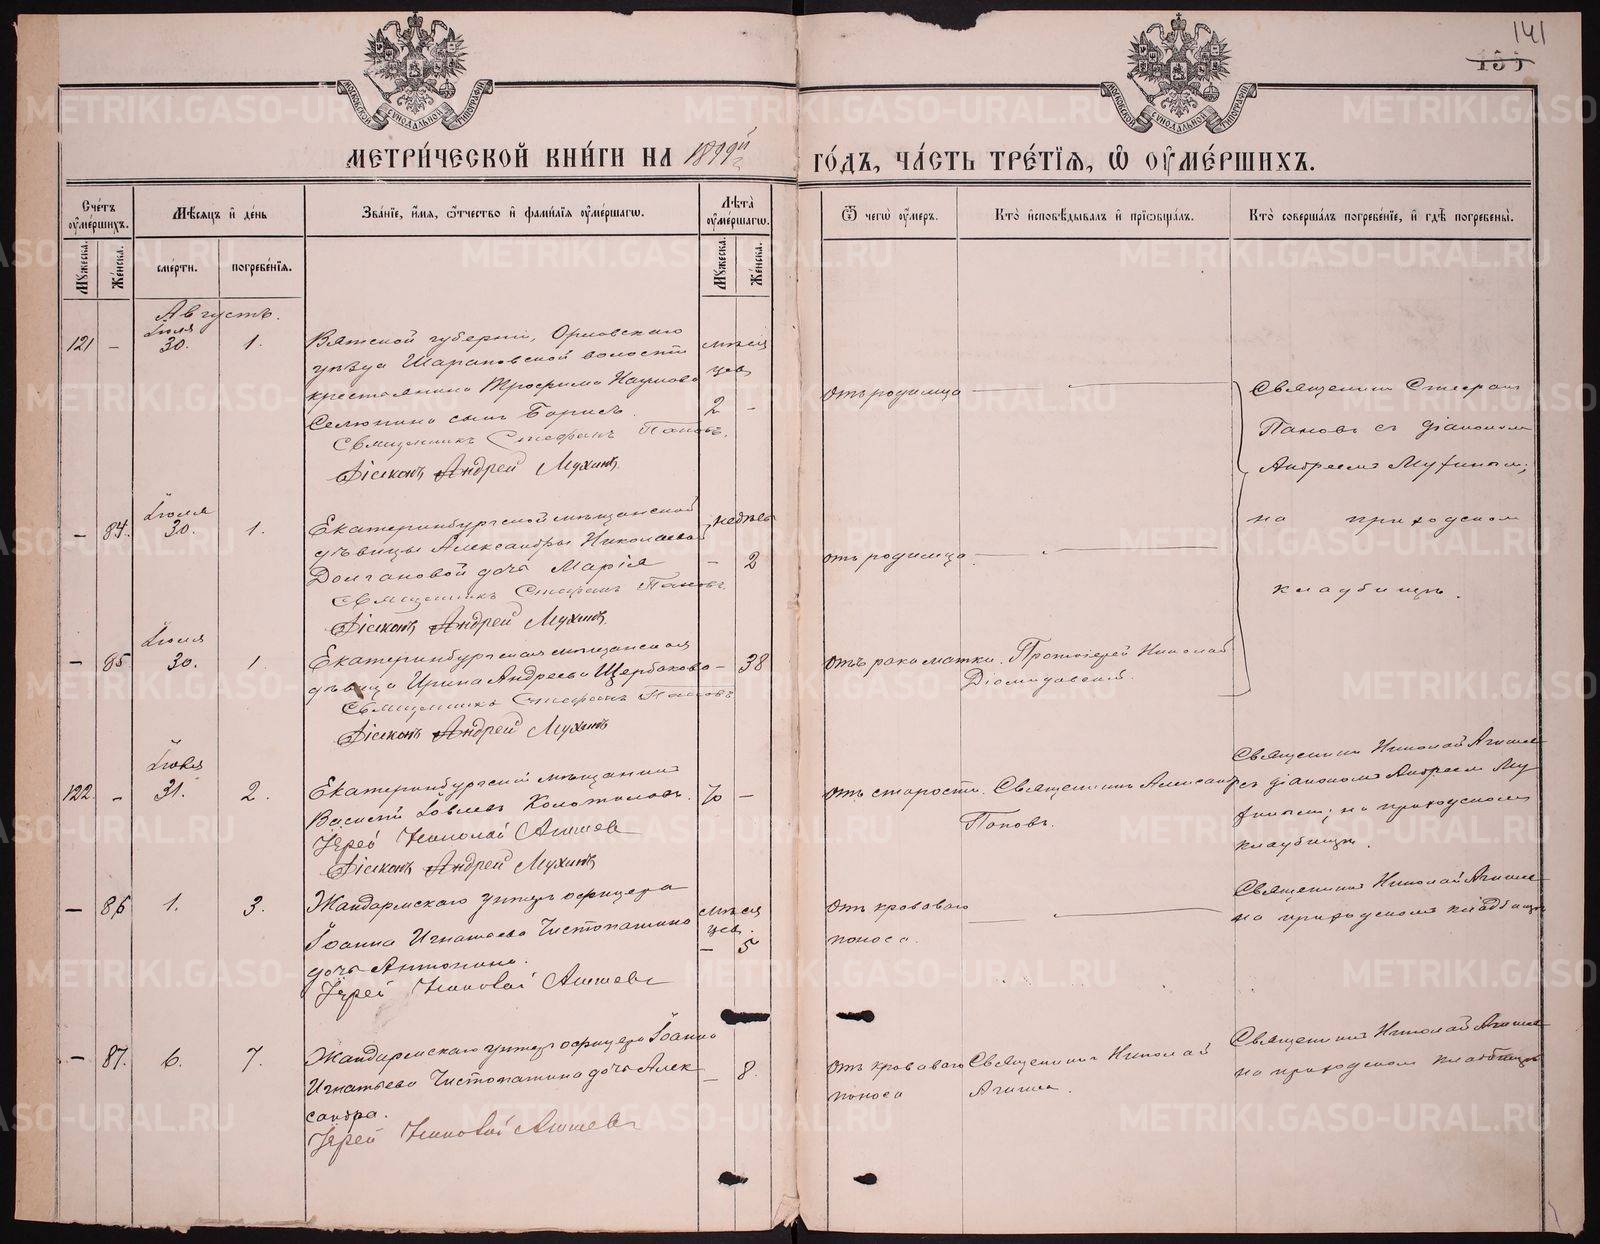 141
МОСКОВСКОЙ СѴНОДАЛЬНОЙ ТИПОГРАФІИ
МОСКОВСКОЙ СѴНОДАЛЬНОЙ ТИПОГРАФІИ
МЕТРИ́ЧЕСКОЙ КНИ́ГИ НА 1899й ГО́ДЪ, ЧА́СТЬ ТРЕ́ТІЯ, Ѡ ОУМЕ́РШИХЪ.
Сче́тъ оуме́ршихъ.
Мужеска.
Же́нска.
Мѣ́сяцъ и де́нь
сме́рти.
погребе́нія.
Зва́ніе, и́мя, ѻтчество и фами́лія оуме́ршагѡ.
Лѣта̀ оуме́ршагѡ.
Мужеска.
Же́нска.
Ѿ чегѡ̀ оу́меръ.
Кто̀ исповѣ́дывалъ и пріѡбща́лъ.
Кто̀ соверша́лъ погребе́ніе, и гдѣ̀ погребены̀.
Августъ.
121 - Іюля 30. 1.
Вятской губерніи, Орловскаго
уѣзда Шарановской волости
крестьянина Трофима Наумова
Селюнина сынъ Борисъ.
Священникъ Стефанъ Поповъ.
Діаконъ Андрей Мухинъ
мѣсяцев 2 -
отъ родимца
Священник Стефан
Попов с діаконом
Андреем Мухиным;
на приходском
кладбищѣ.
- 84. Іюля 30. 1.
Екатеринбургской мѣщанской
дѣвицы Александры Николаевой
Долгановой дочь Марія
Священникъ Стефанъ Поповъ
Діаконъ Андрей Мухинъ
недѣль - 2
отъ родимца.
- 85 Іюля 30. 1.
Екатеринбургская мѣщанская
дѣвица Ирина Андреева Щербакова
Священникъ Стефанъ Поповъ
Діаконъ Андрей Мухинъ
- 38
отъ рака матки.
Протоіерей Николай
Діомидовский.
122 - Іюля 31. 2.
Екатеринбургскій мѣщанин
Василій Іовлев Колотилов.
Іерей Николай Агишев
Діаконъ Андрей Мухинъ
70 -
отъ старости.
Священникъ Александр
Поповъ.
Священник Николай Агишев
с діаконом Андреем Му
хиным; на приходском
кладбищѣ.
- 86 1. 3.
Жандармскаго унтер офицера
Іоанна Игнатьева Чистопашина
дочь Антонина.
Іерей Николай Агишев
мѣсяцев. - 5
отъ кроваваго
поноса.
Священник Николай Агишев
на приходском кладбищѣ
- 87. 6. 7.
Жандармскаго унтер офицера Іоанна
Игнатьева Чистопашина дочь Алек
сандра.
Іерей Николай Агишев
- 8.
отъ кроваваго
поноса
Священник Николай
Агишев.
Священник Николай Агишев
на приходском кладбищѣ
METRIKI.GASO-URAL.RU